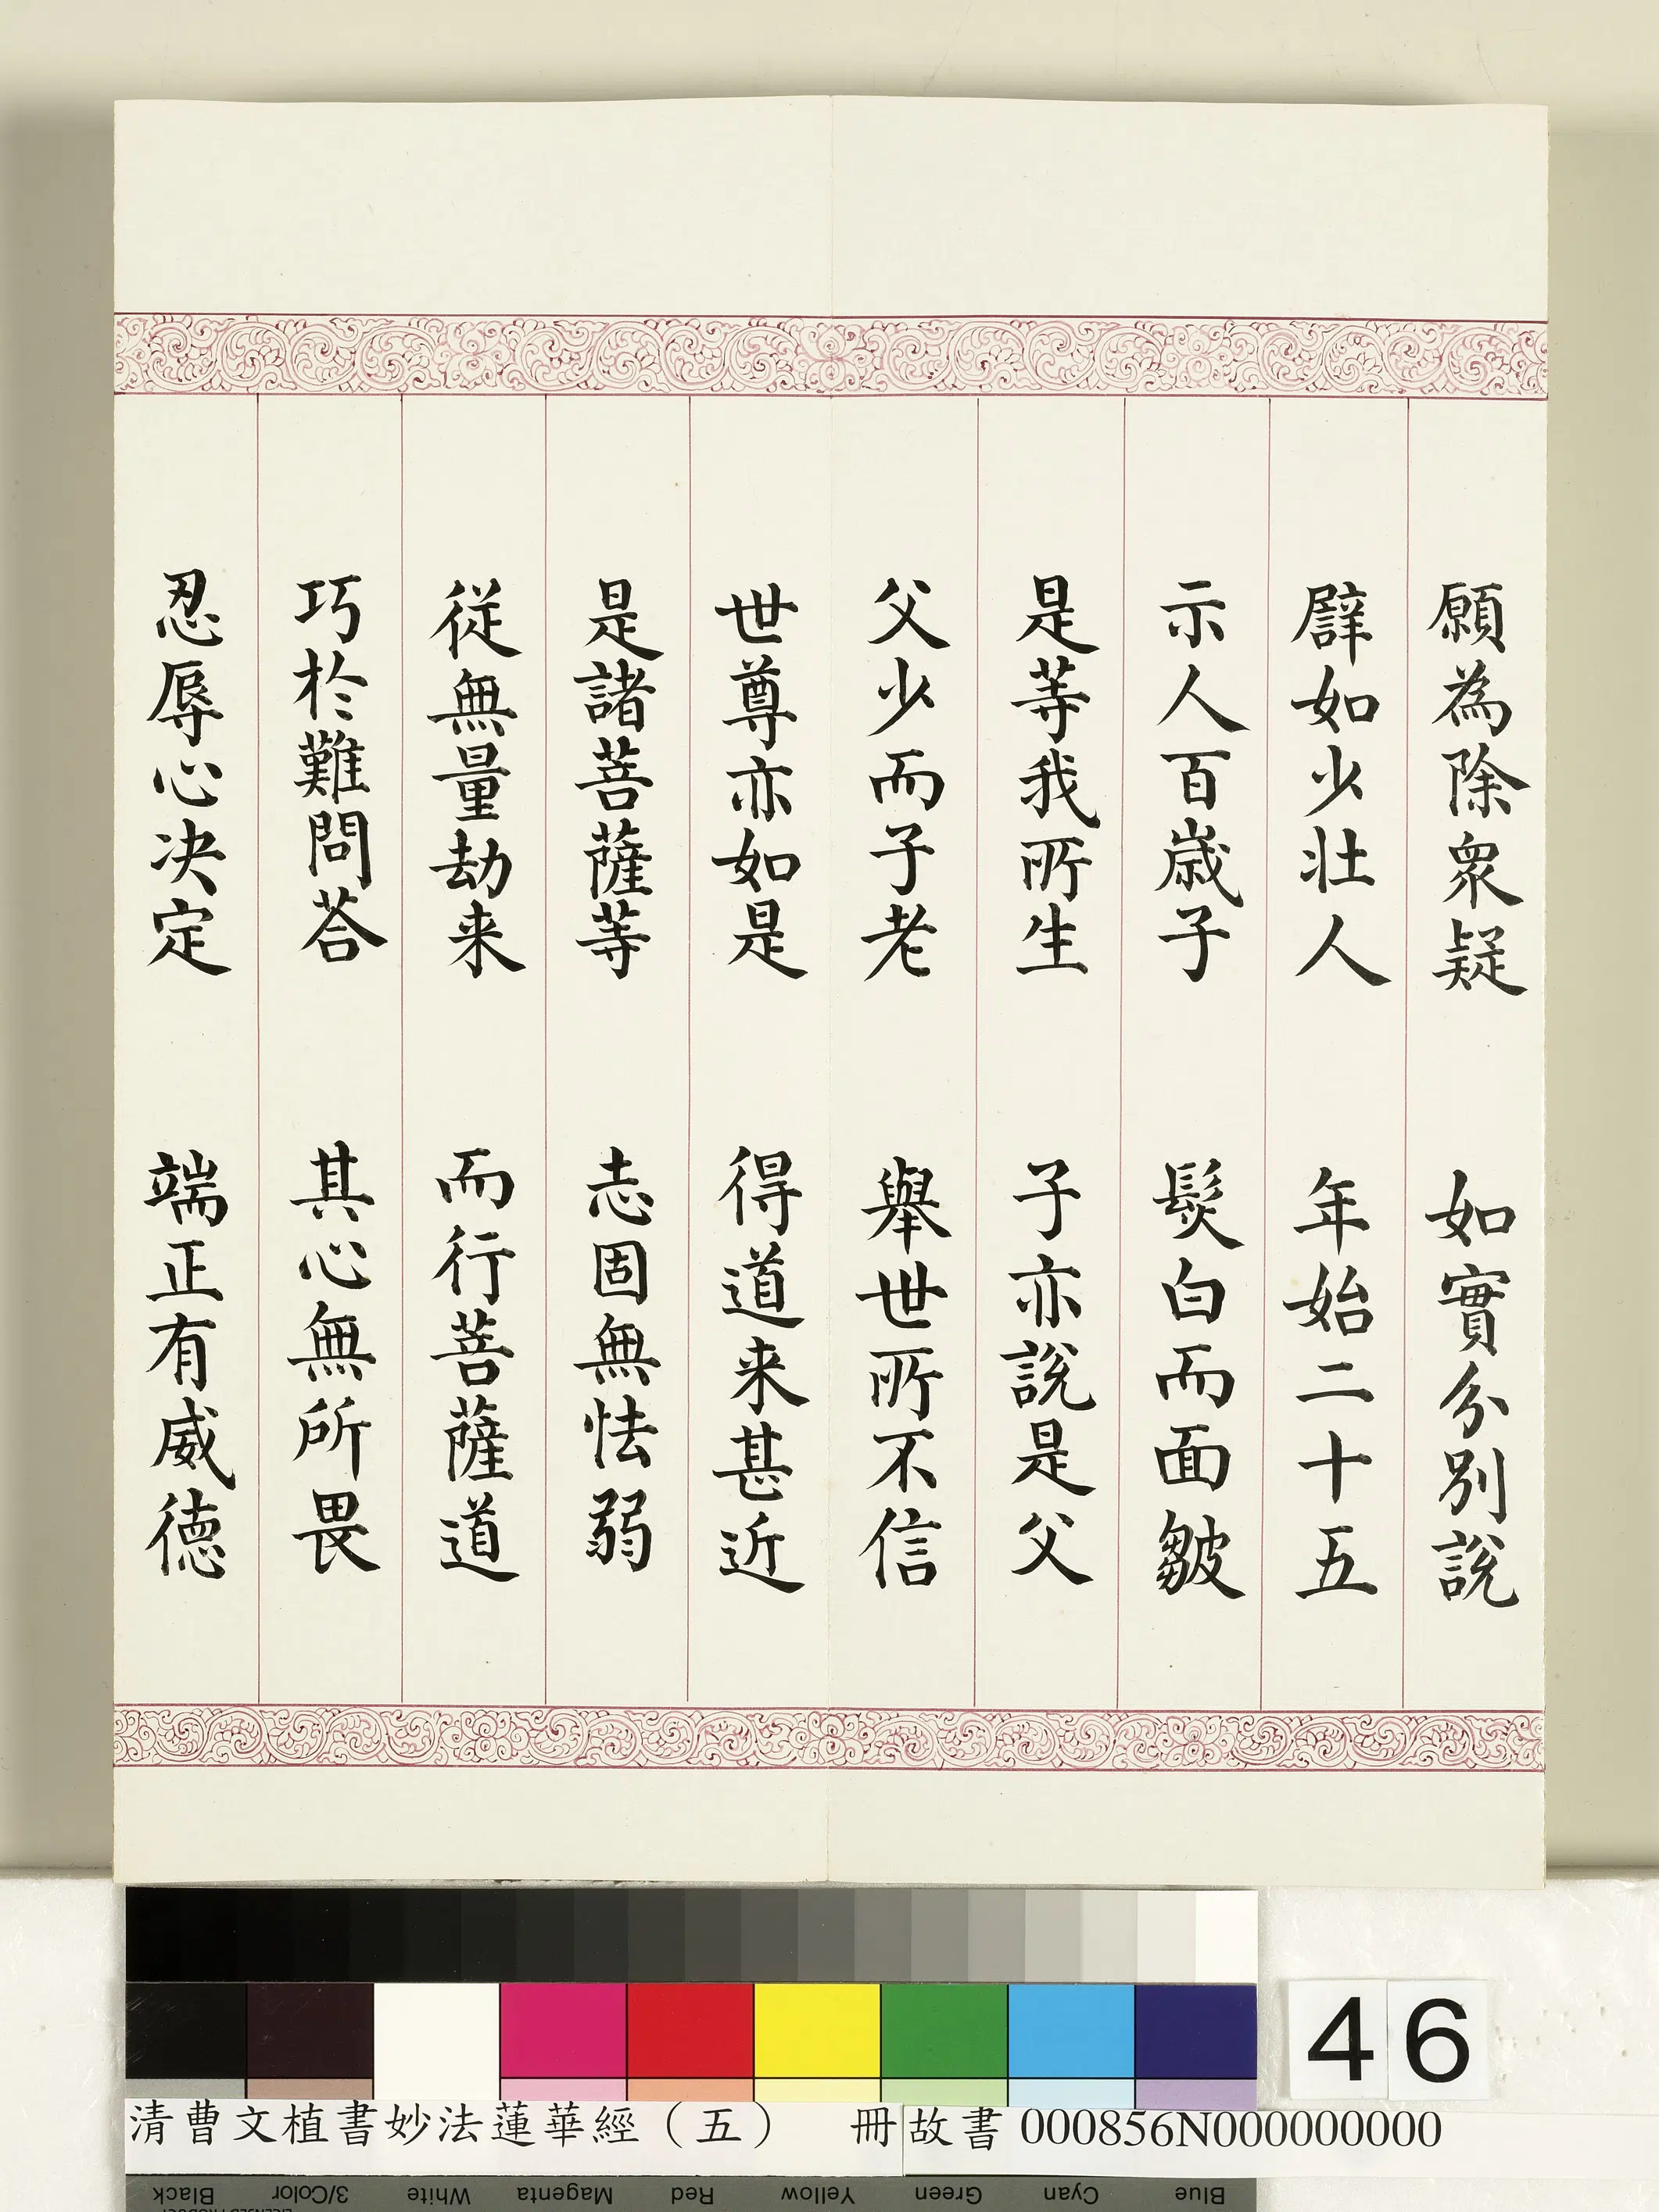 願為除衆疑　如實分別說
譬如少壯人　年始二十五
示人百歳子　髮白而面皺
是等我所生　子亦說是父
父少而子老　舉世所不信
世尊亦如是　得道来甚近
是諸菩薩等　志固無怯弱
從無量劫来　而行菩薩道
巧於難問荅　其心無所畏
忍辱心决定　端正有威德
46
清曹文植書妙法蓮華經（五）　冊故書 000856N000000000
Black 3/Color White Magenta Red Yellow Green Cyan Blue